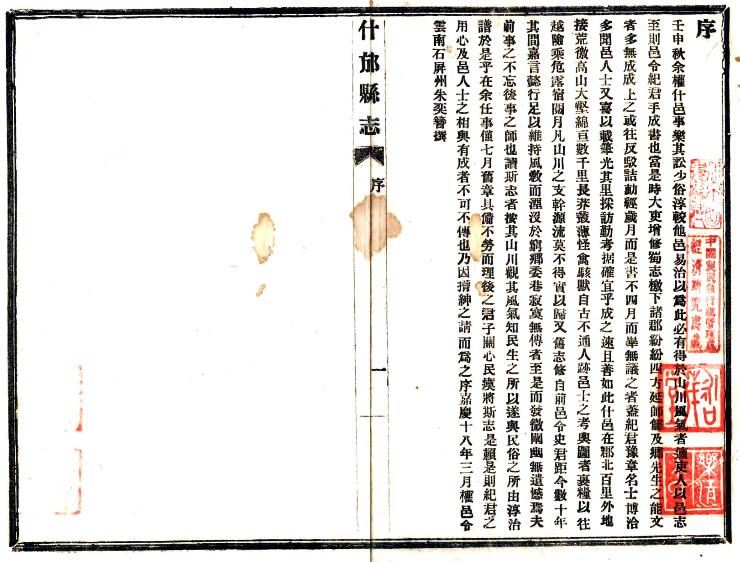 序
壬申秋余權什邑事樂其訟少俗淳較他邑易治以爲此必有得於山川風氣者適東人以邑志
至則邑令紀君手成書也當是時大吏增修蜀志檄下諸郡紛紛四方延師儒及鄉先生之能文
者多無成成上之或往反駁詰動經歲月而是書不四月而畢無議之者蓋紀君豫章名士博洽
多聞邑人士又喜以載筆光其里採訪勤考据確宜乎成之速且善如此什邑在郡北百里外地
接荒徼高山大壑綿亘數千里長莽叢薄怪禽駭獸自古不通人跡邑士之考輿圖者裹糧以往
越險乘危露宿閱月凡山川之支幹源流莫不得實以歸又舊志修自前邑令史君距今數十年
其間嘉言懿行足以維持風敎而湮沒於窮鄉委巷寂寞無傳者至是而發微闡幽無遺憾焉夫
前事之不忘後事之師也讀斯志者按其山川觀其風氣知民生之所以遂與民俗之所由淳治
譜於是乎在余任事僅七月舊章具備不勞而理後之君子關心民瘼將斯志是賴是則紀君之
用心及邑人士之相與有成者不可不傳也乃因搢紳之請而爲之序嘉慶十八年三月權邑令
雲南石屏州朱奕簪撰
什邡縣志
序
一